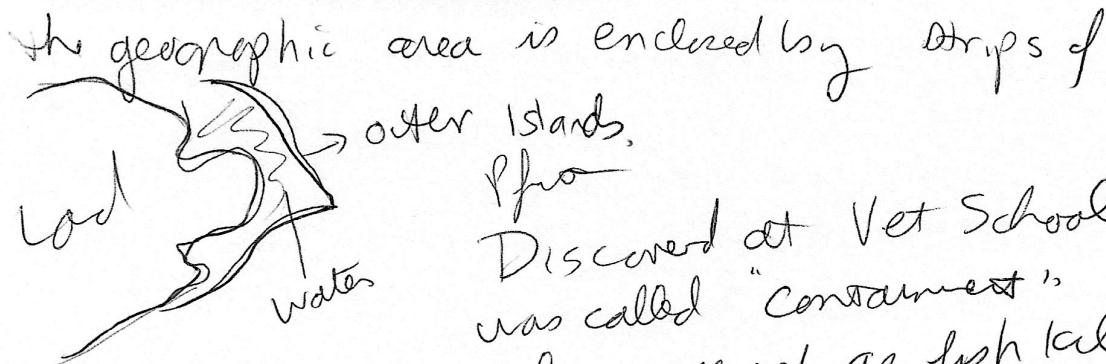 the geographic area is enclosed by strips of
outer Islands.
Land
Discovered at Vet School
water
was called "containment"
as fish